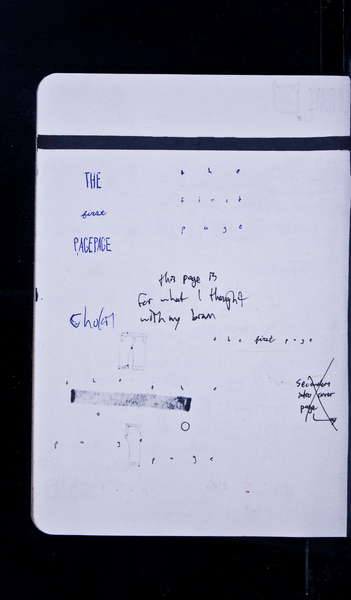 THE
first
PAGEPAGE
t h e
f i r s t
p a g e
this page is
for what I thought
with my brain
t h e first p a g e
t h e t h e
cover
page
p a g e
p a g e